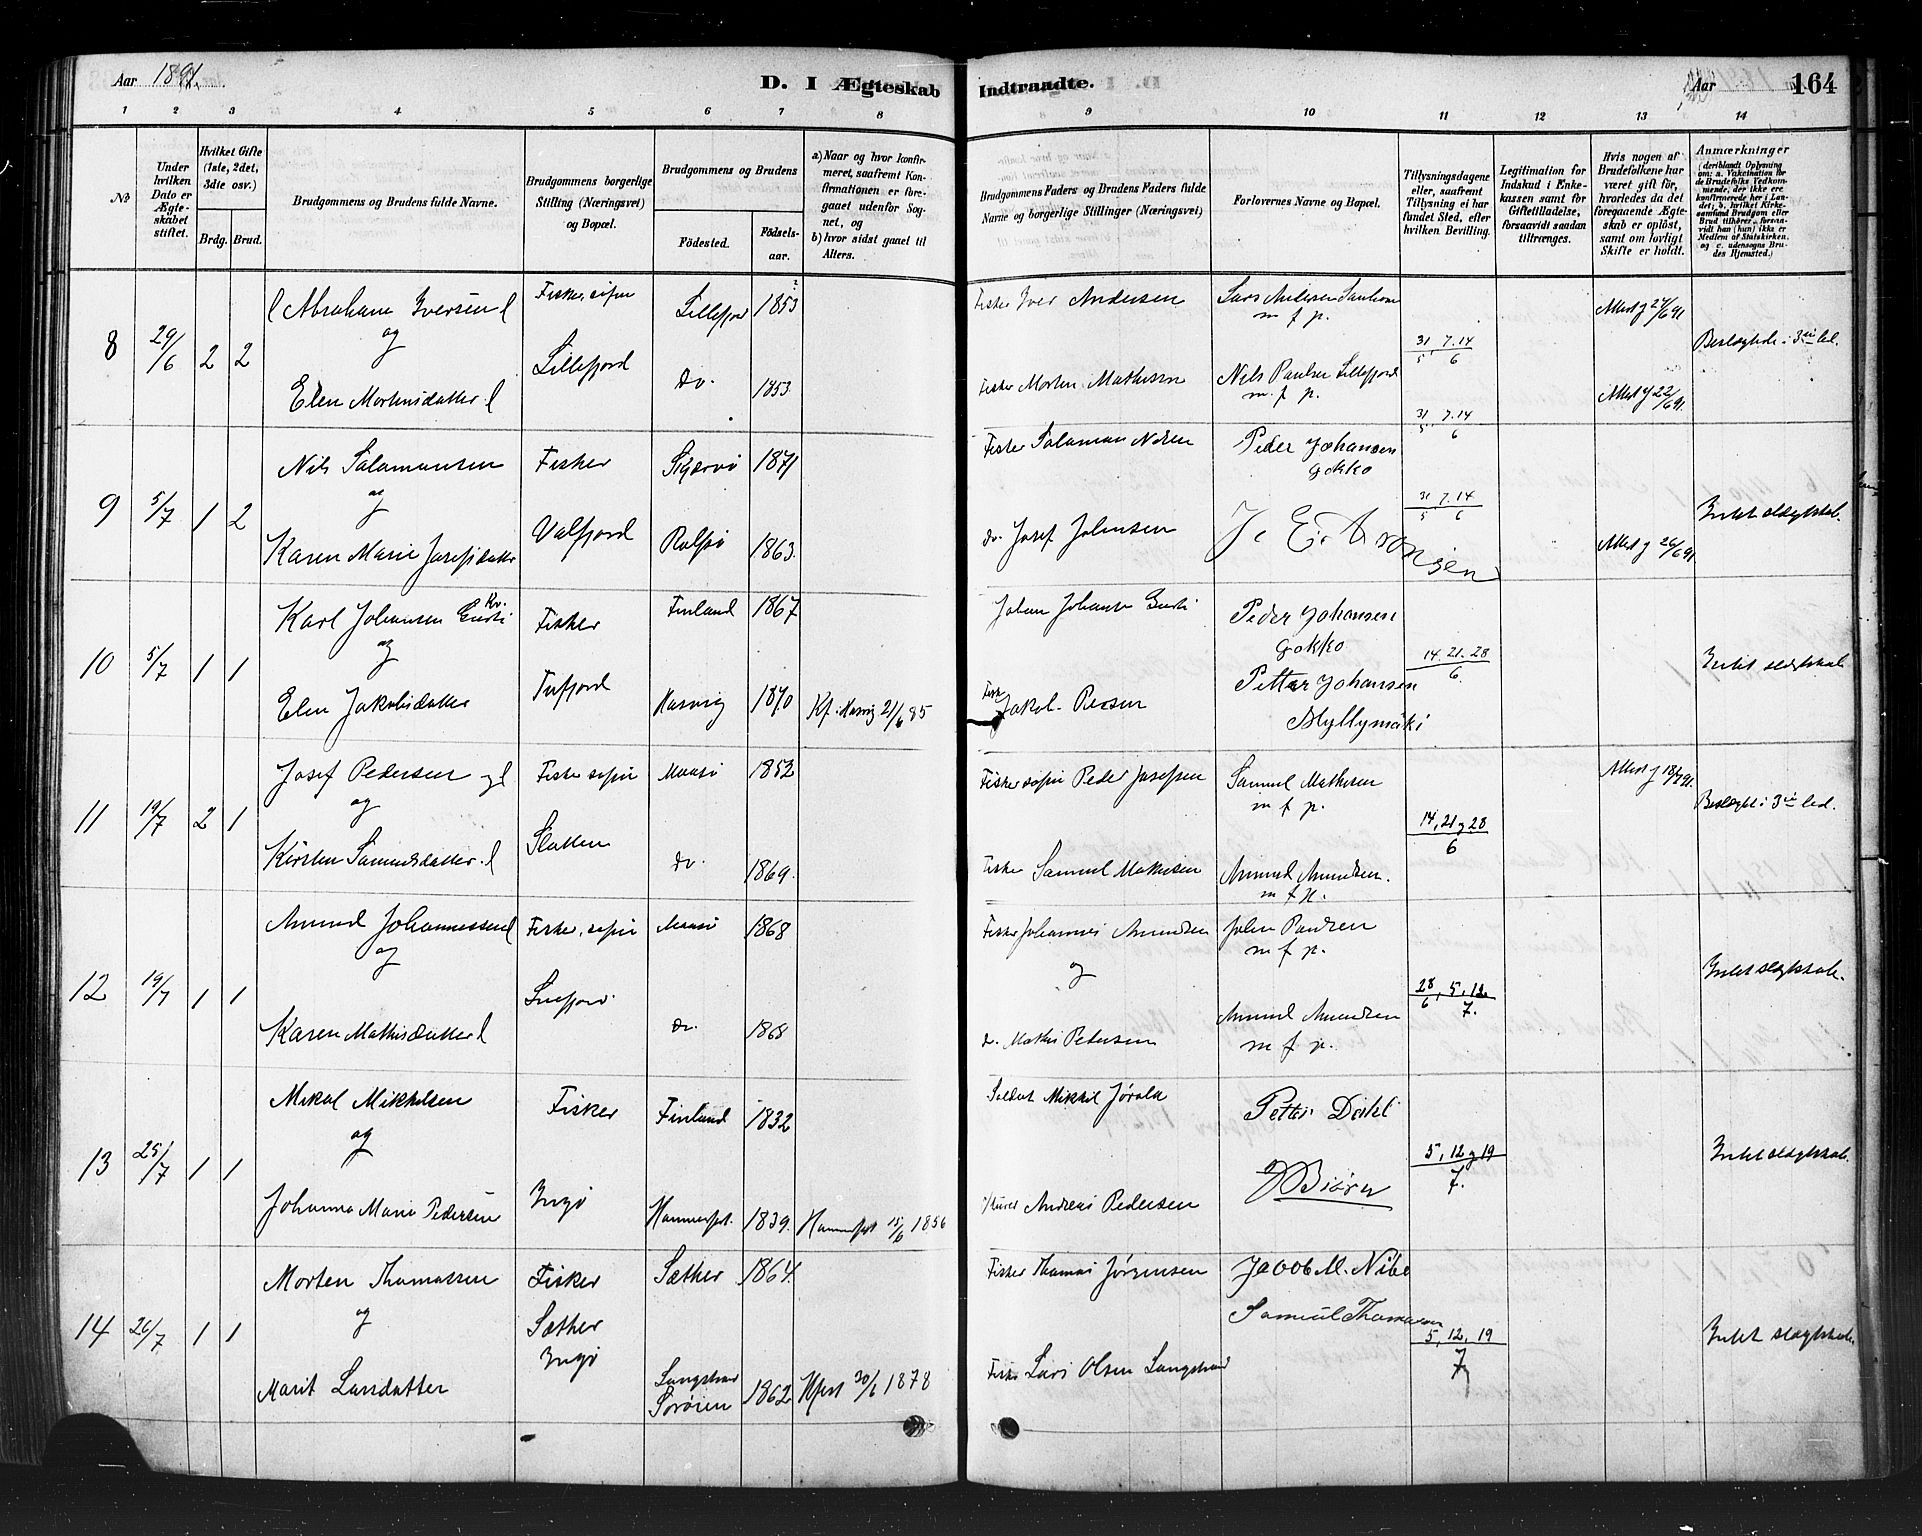 Aar 1891.
D. I Ægteskab Indtraadte.
Aar
164
1 2 3 4 5 6 7 8 9 10 11 12 13 14
No
Under hvilken Dato er Ægteskabet stiftet.
Hvilket Gifte (1ste, 2det, 3die osv.)
Brdg. Brud.
Brudgommens og Brudens fulde Navne.
Brudgommens borgerlige Stilling (Næringsvei) og Bopæl.
Brudgommens og Brudens
Fødested. Fødsels-aar.
a) Naar og hvor konfirmeret, saafremt Konfirmationen er foregaaet udenfor Sognet, og
b) hvor sidst gaaet til Alters.
Brudgommens Faders og Brudens Faders fulde Navne og borgerlige Stillinger (Næringsvei)
Forlovernes Navne og Bopæl.
Tillysningsdagene eller, saafremt Tillysning ei har fundet Sted, efter hvilken Bevilling.
Legitimation for Indskud i Enkekassen samt for Giftetilladelse, forsaavidt saadan tiltrænges.
Hvis nogen af Brudefolkene har været gift før, hvorledes da det foregaaende Ægteskab er opløst, samt om lovligt Skifte er holdt.
Anmærkninger
(deriblandt Oplysning om: a. Vakcination for de Brudefolks Vedkommende, der ikke ere konfirmerede her i Landet; b. hvilket Kirkesamfund Brudgom eller Brud tilhører, forsaavidt han (hun) ikke er Medlem af Statskirken, og c. udensogns Brudes Hjemsted.)
8 29/6 2 2
Abraham Iversen
og
Elen Mortensdatter
Fisker, søfin
Lillefjord
Lillefjord 1853
do. 1853
Fisker Iver Andersen
Fisker Morten Mathisen
m f p.
Nils Paulsen Lillefjord
m. f p.
31 7.14
5 6
Attest 27/6 91
Attest 22/6 91.
Beslægtede i 3die led.
9 5/7 1 2
Nils Salamonsen
og
Karen Marie Josefsdatter
Fisker
Valfjord
Skjærvø 1871
Rolfsø 1863.
Fisker Salamon Nilsen
do. Josef Johnsen
Peder Johansen
Gokko
31 7.14
5 6
31 7.14
5 6
Attest 26/6 91.
Intet slægtskab.
10 5/7 1 1
Karl Johansen
og
Elen Jakobsdatter
Fisker
Tufjord
Finland 1867
Hasvig 1870
Kf. i Hasvig 21/6 85
Johan Johansen
Fisker Jakob Persen
Peder Johansen
Gokko
Petter Johansen
Myllymäki
14.21.28
6.
Intet slægtskab
11 19/7 2 1
Josef Pedersen
og
Kirsten Samuelsdatter
Fisker søfin
Slatten
Maasø 1852
do. 1869.
Fisker søfin Peder Josefsen
Fisker Samuel Mathisen
Samuel Mathisen
m f p.
Amund Amundsen.
m f p.
14, 21 og 28
6
Attest 18/7 91.
Beslægtet i 3die led.
12 19/7 1 1
Amund Johannessen
og
Karen Mathisdatter
Fisker, søfin
Snefjord.
Maasø 1868
do. 1868
Fisker Johannes Amundsen
og
d. Mathis Pedersen
John Paulsen
m f p.
Amund Amundsen
m f p.
28, 5, 12
6 7.
Intet slægtskab.
13 25/7 1 1
Mikal Mikkelsen
og
Johanna Marie Pedersen
Fisker
Ingø
Finland 1832
Hammerfest. 1839.
Hammerfest 15/6 1856
Soldat Mikkil
Andreas Pedersen
Petter Dahl
5, 12 og 19
7.
Intet slægtskab.
14 26/7 1 1
Morten Thomassen
og
Marit Larsdatter
Fisker
Sæther
Ingø
Sæther 1864.
Langstrand
Sørøen 1862
Hfest 30/6 1878
Fisker Thomas Jørgensen
Fisker Lars Olsen Langstrand
Jacob M. Nibe
Samuel Thomassen
5, 12, 19
7
Intet slægtskab.